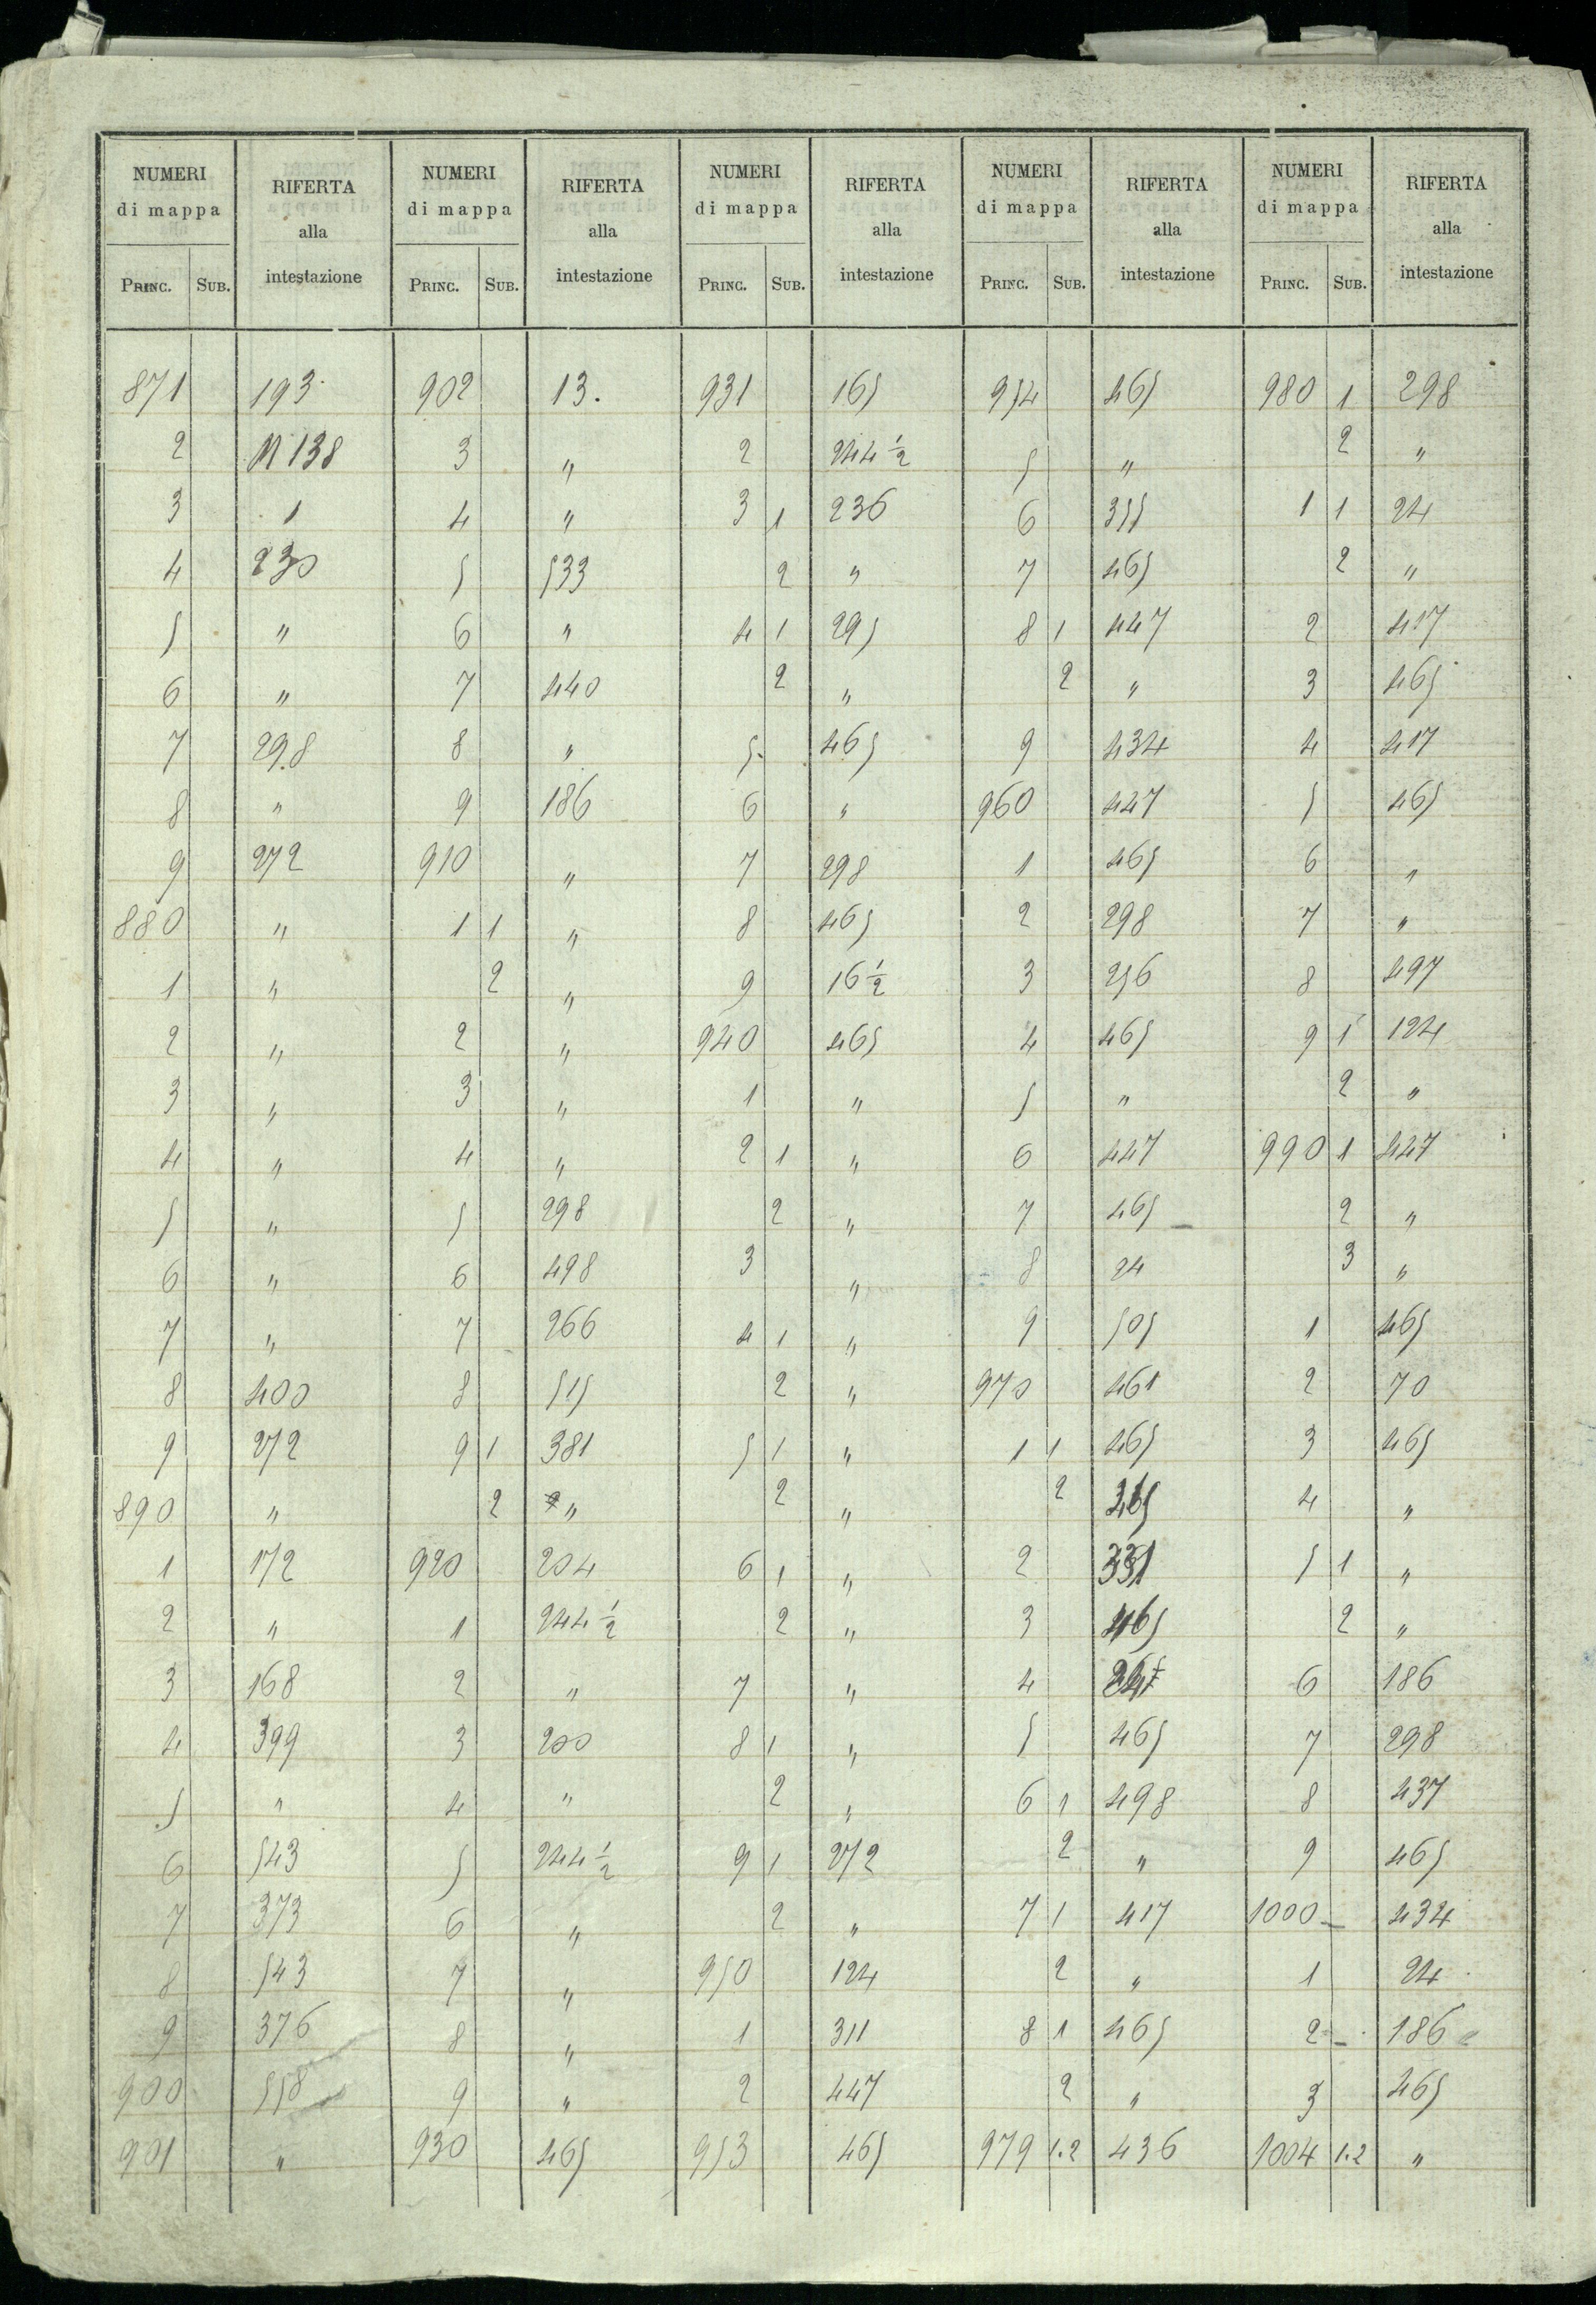 NUMERI di mappa | RIFERTA alla intestazione | NUMERI di mappa | RIFERTA alla intestazione | NUMERI di mappa | RIFERTA alla intestazione | NUMERI di mappa | RIFERTA alla intestazione | NUMERI di mappa | RIFERTA alla intestazione
PRINC. | SUB. | | PRINC. | SUB. | | PRINC. | SUB. | | PRINC. | SUB. | | PRINC. | SUB. |
871 | | 193 | 902 | | 13. | 931 | | 165 | 954 | | 465 | 980 | 1 | 298
2 | | 138 | 3 | | " | 2 | | 244 1/2 | 5 | | " | | 2 | "
3 | | 1 | 4 | | " | 3 | 1 | 236 | 6 | | 355 | 1 | 1 | 24
4 | | 230 | 5 | | 533 | | 2 | " | 7 | | 465 | | 2 | "
5 | | " | 6 | | " | 4 | 1 | 295 | 8 | 1 | 447 | 2 | | 417
6 | | " | 7 | | 440 | | 2 | " | | 2 | " | 3 | | 465
7 | | 298 | 8 | | " | 5 | | 465 | 9 | | 434 | 4 | | 417
8 | | " | 9 | | 186 | 6 | | " | 960 | | 447 | 5 | | 465
9 | | 272 | 910 | | " | 7 | | 298 | 1 | | 465 | 6 | | "
880 | | " | 1 | 1 | " | 8 | | 465 | 2 | | 298 | 7 | | "
1 | | " | | 2 | " | 9 | | 16 1/2 | 3 | | 256 | 8 | | 497
2 | | " | 2 | | " | 940 | | 465 | 4 | | 465 | 9 | 1 | 124
3 | | " | 3 | | " | 1 | | " | 5 | | " | | 2 | "
4 | | " | 4 | | " | 2 | 1 | " | 6 | | 447 | 990 | 1 | 447
5 | | " | 5 | | 298 | | 2 | " | 7 | | 465 | | 2 | "
6 | | " | 6 | | 498 | 3 | | " | 8 | | 24 | | 3 | "
7 | | " | 7 | | 266 | 4 | 1 | " | 9 | | 505 | 1 | | 465
8 | | 400 | 8 | | 515 | | 2 | " | 970 | | 461 | 2 | | 70
9 | | 272 | 9 | 1 | 381 | 5 | 1 | " | 1 | 1 | 465 | 3 | | 465
890 | | " | | 2 | " | | 2 | " | | 2 | | 4 | | "
1 | | 172 | 920 | | 204 | 6 | 1 | " | 2 | | 331 | 5 | 1 | "
2 | | " | 1 | | 244 1/2 | | 2 | " | 3 | | 465 | | 2 | "
3 | | 168 | 2 | | " | 7 | | " | 4 | | | 6 | | 186
4 | | 399 | 3 | | 200 | 8 | 1 | " | 5 | | 465 | 7 | | 298
5 | | " | 4 | | " | | 2 | " | 6 | 1 | 498 | 8 | | 437
6 | | 543 | 5 | | 244 1/2 | 9 | 1 | 272 | | 2 | " | 9 | | 465
7 | | 373 | 6 | | " | | 2 | " | 7 | 1 | 417 | 1000 | – | 434
8 | | 543 | 7 | | " | 950 | | 124 | | 2 | " | 1 | | 24
9 | | 376 | 8 | | " | 1 | | 311 | 8 | 1 | 465 | 2 | – | 186
900 | | 558 | 9 | | " | 2 | | 447 | | 2 | " | 3 | | 465
901 | | " | 930 | | 465 | 953 | | 465 | 979 | 1.2 | 436 | 1004 | 1.2 | "